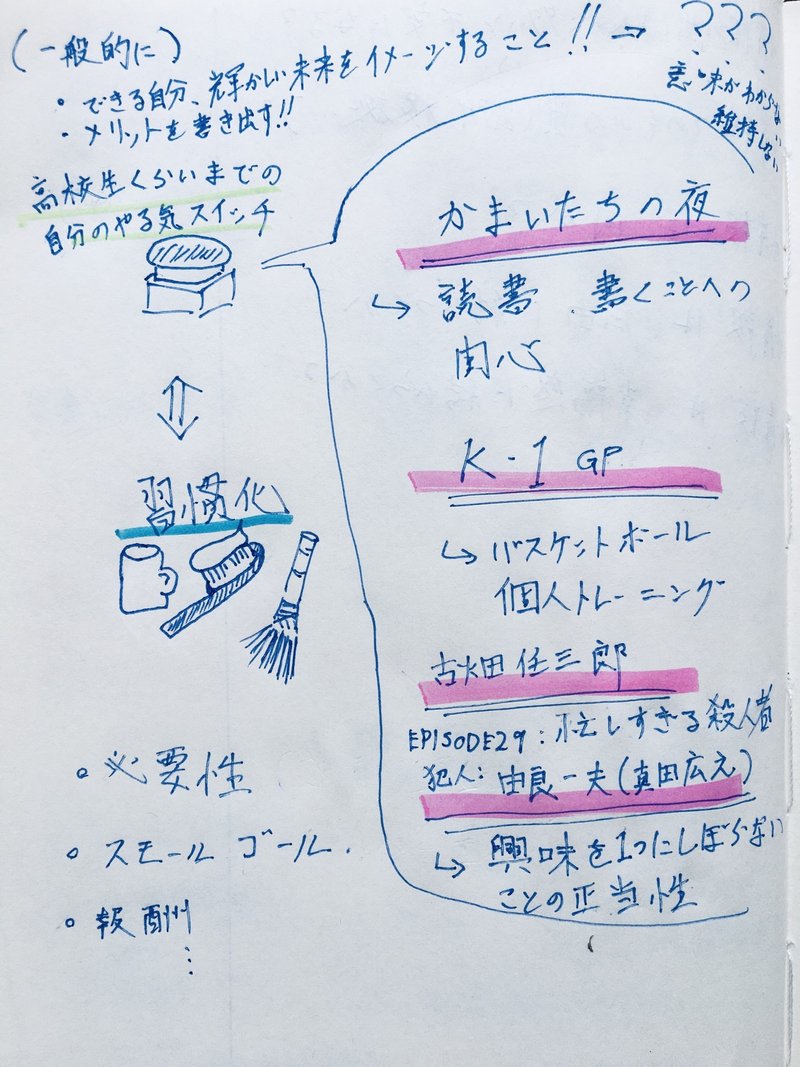 (一般的に)
・できる自分、輝かしい未来をイメージすること!! → ???
・メリットを書き出す!!
意味がわからない
維持しない
高校生くらいまでの
自分のやる気スイッチ
かまいたちの夜
↳ 読書、書くことへの
関心
K-1 GP
↳ バスケットボール
個人トレーニング
古畑任三郎
EPISODE29:忙しすぎる殺人者
犯人:由良一夫(真田広之)
↳ 興味を1つにしぼらない
ことの正当性
⇕
習慣化
○ 必要性
○ スモールゴール.
○ 報酬
⋮